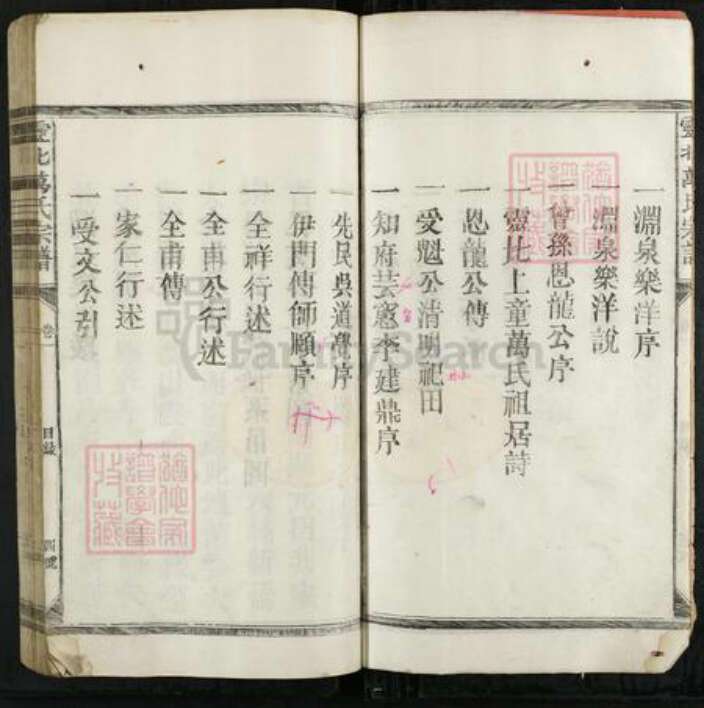 一淵泉樂洋序
一淵泉樂洋說
一曾孫恩龍公序
一靈北上童萬氏祖居詩
一恩龍公傳
一受魁公清明祀田
一知府芸憲李建鼎序
一先民吳道覺序
一伊門傳師願序
一全祥行述
一全甫公行述
一全甫傳
一家仁行述
一受文公引
靈北萬氏宗譜
卷一
目錄
四號
FamilySearch